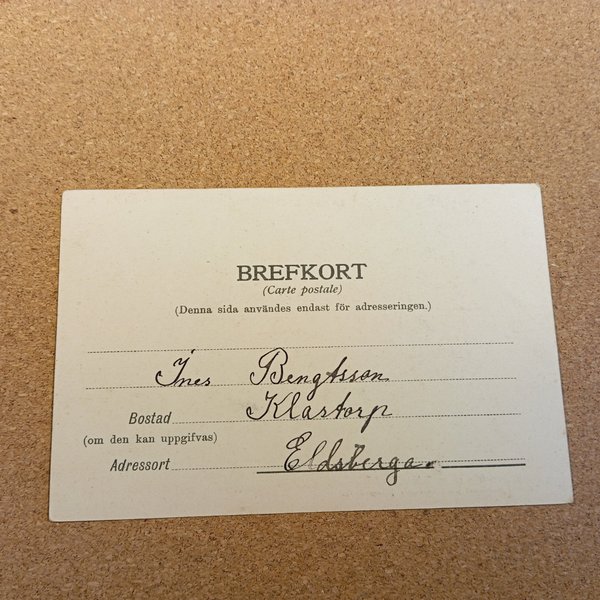 BREFKORT
(Carte postale)
(Denna sida användes endast för adresseringen.)
Ines Bengtsson
Bostad Klastorp
(om den kan uppgifvas)
Adressort Eldsberga.